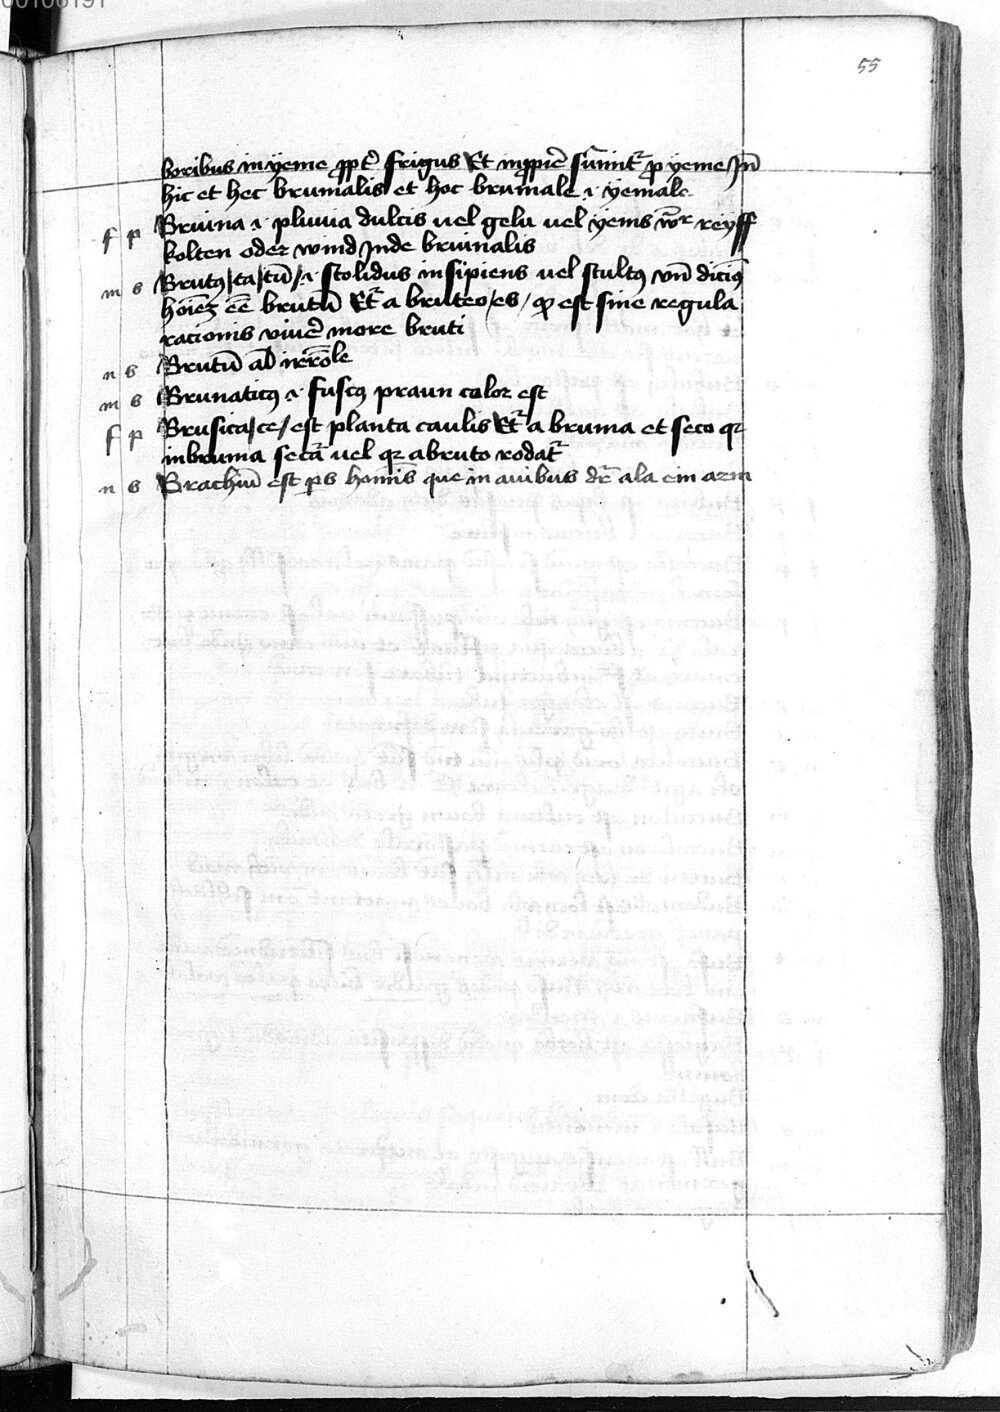 00106191
55
boribus in yeme ꝓpt̃ frigus Et inꝓpriẽ sũmitr̃ ꝑ yeme Jñ
hic et hec brumalis et hoc brumale .i. yemale
f p Bruina .i. pluuia dulcis uel gelu uel yems reyff
kolten oder wind Jnde bruinalis
m s Brutꝯ / ta / tũ / .i. stolidus insipiens uel stultꝯ vñ dicimꝯ
hoiẽz eẽ brutũ Et̃ a bruteo / es / ꝙ est sine regula
racionis viuẽ more bruti
n s Brutũ aĩal irrõle
m s Brunaticꝯ .i. fuscꝯ praun color est
f p Brusica / ce / est planta caulis Et̃ a bruma et seco qꝛ
in bruma secat̃ uel qꝛ a bruto rodat̃
n s Brachiũ est ꝑs homĩs que in auibus dr̃ ala ein arm